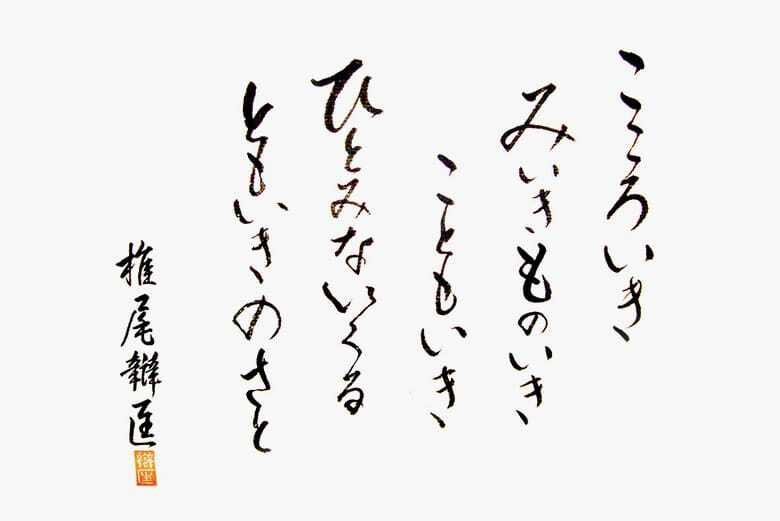 こころいき
みいきものいき
こともいき
ひとみないくる
ともいきのさと
椎尾辨匡